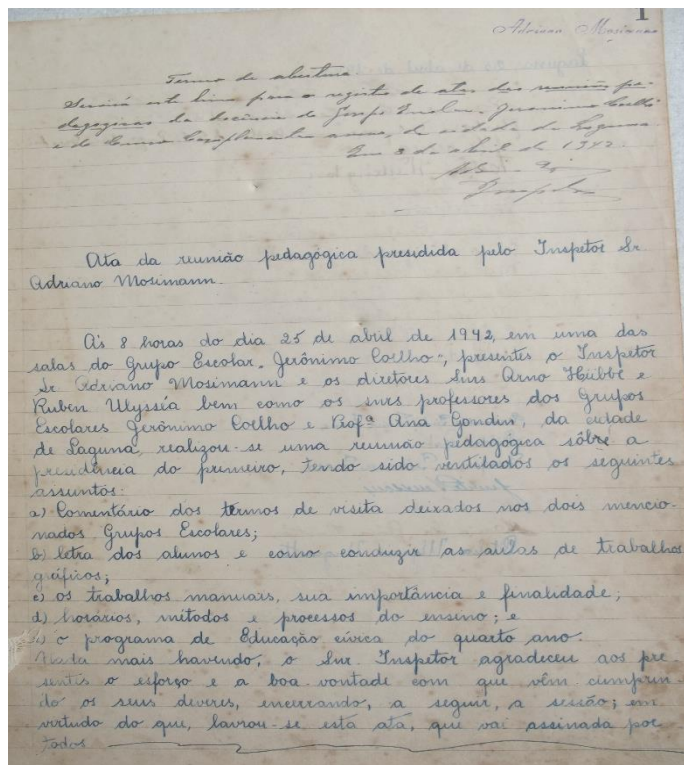 1
Adriano Mosimann
Termo de abertura
Servirá este livro para o registo de atas das reuniões pe-
dagogicas da Grupo Escolar Jeronimo Coelho
e do Curso Complementar anexo, da cidade da Laguna
Em 8 de abril de 1942.
Inspetor
Ata da reunião pedagógica presidida pelo Inspetor Sr.
Adriano Mosimann.
Ás 8 horas do dia 25 de abril de 1942, em uma das
salas do Grupo Escolar "Jerônimo Coelho", presentes o Inspetor
Sr Adriano Mosimann e os diretores Snrs Arno Hübbe e
Ruben Ulysséa bem como os snrs professores dos Grupos
Escolares Jerônimo Coelho e Profª Ana Gondin, da cidade
de Laguna, realizou-se uma reunião pedagógica sôbre a
presidência do primeiro, tendo sido ventilados os seguintes
assuntos:
a) Comentário dos termos de visita deixados nos dois mencio-
nados Grupos Escolares;
b) letra dos alunos e como conduzir as aulas de trabalhos
gráficos;
c) os trabalhos manuais, sua importância e finalidade;
d) horários, métodos e processos do ensino; e
o programa de Educação cívica do quarto ano.
Nada mais havendo, o Snr. Inspetor agradeceu aos pre-
sentes o esforço e a boa vontade com que vêm cumprin-
do os seus deveres, encerrando, a seguir, a sessão; em
virtudo do que, lavrou-se esta ata, que vai assinada por
todos